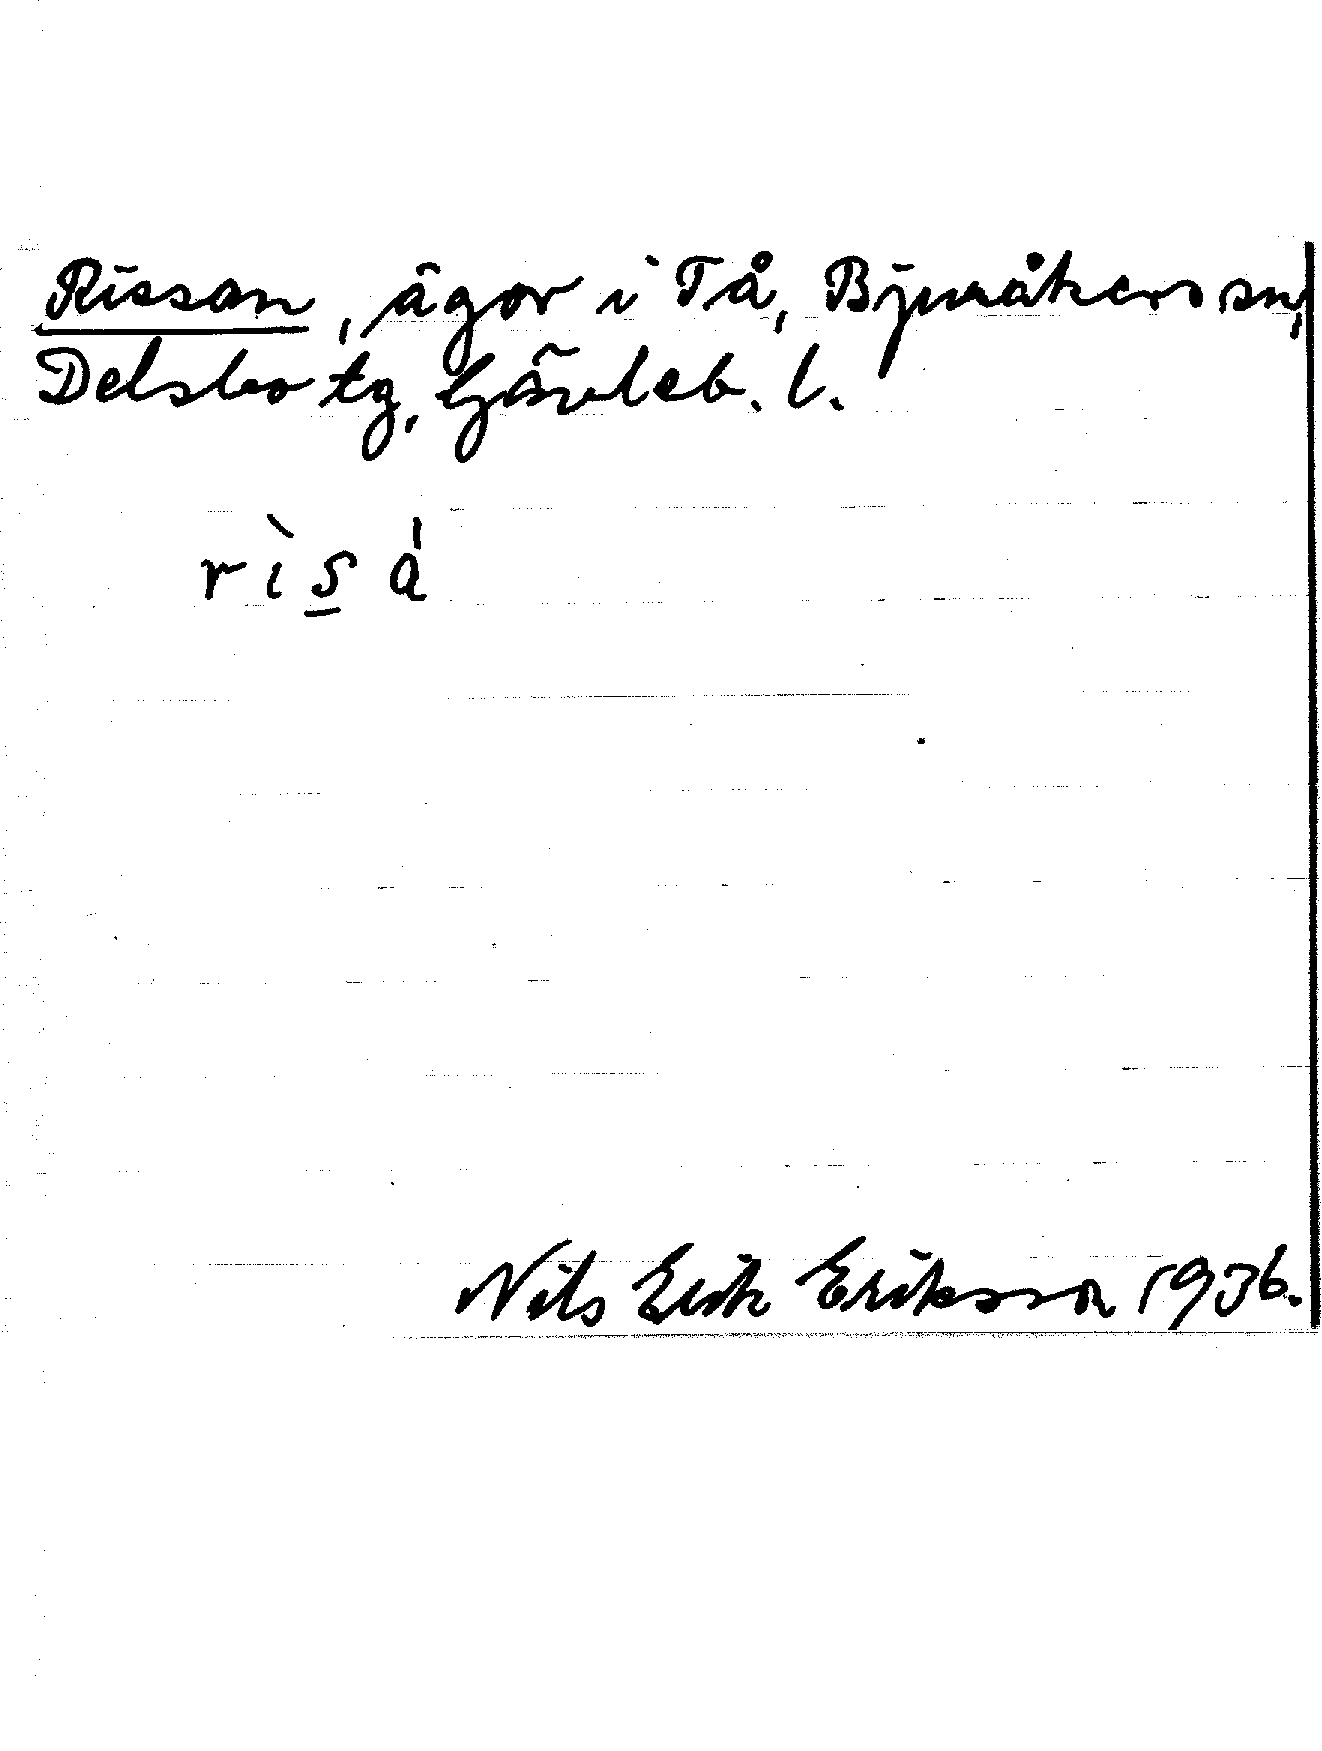 Rissan, ägor i Tå, Bjuråkers sn,
Delsbo tg, Gävleb. l.
rìs̲á
Nils Erik Eriksson 1936.